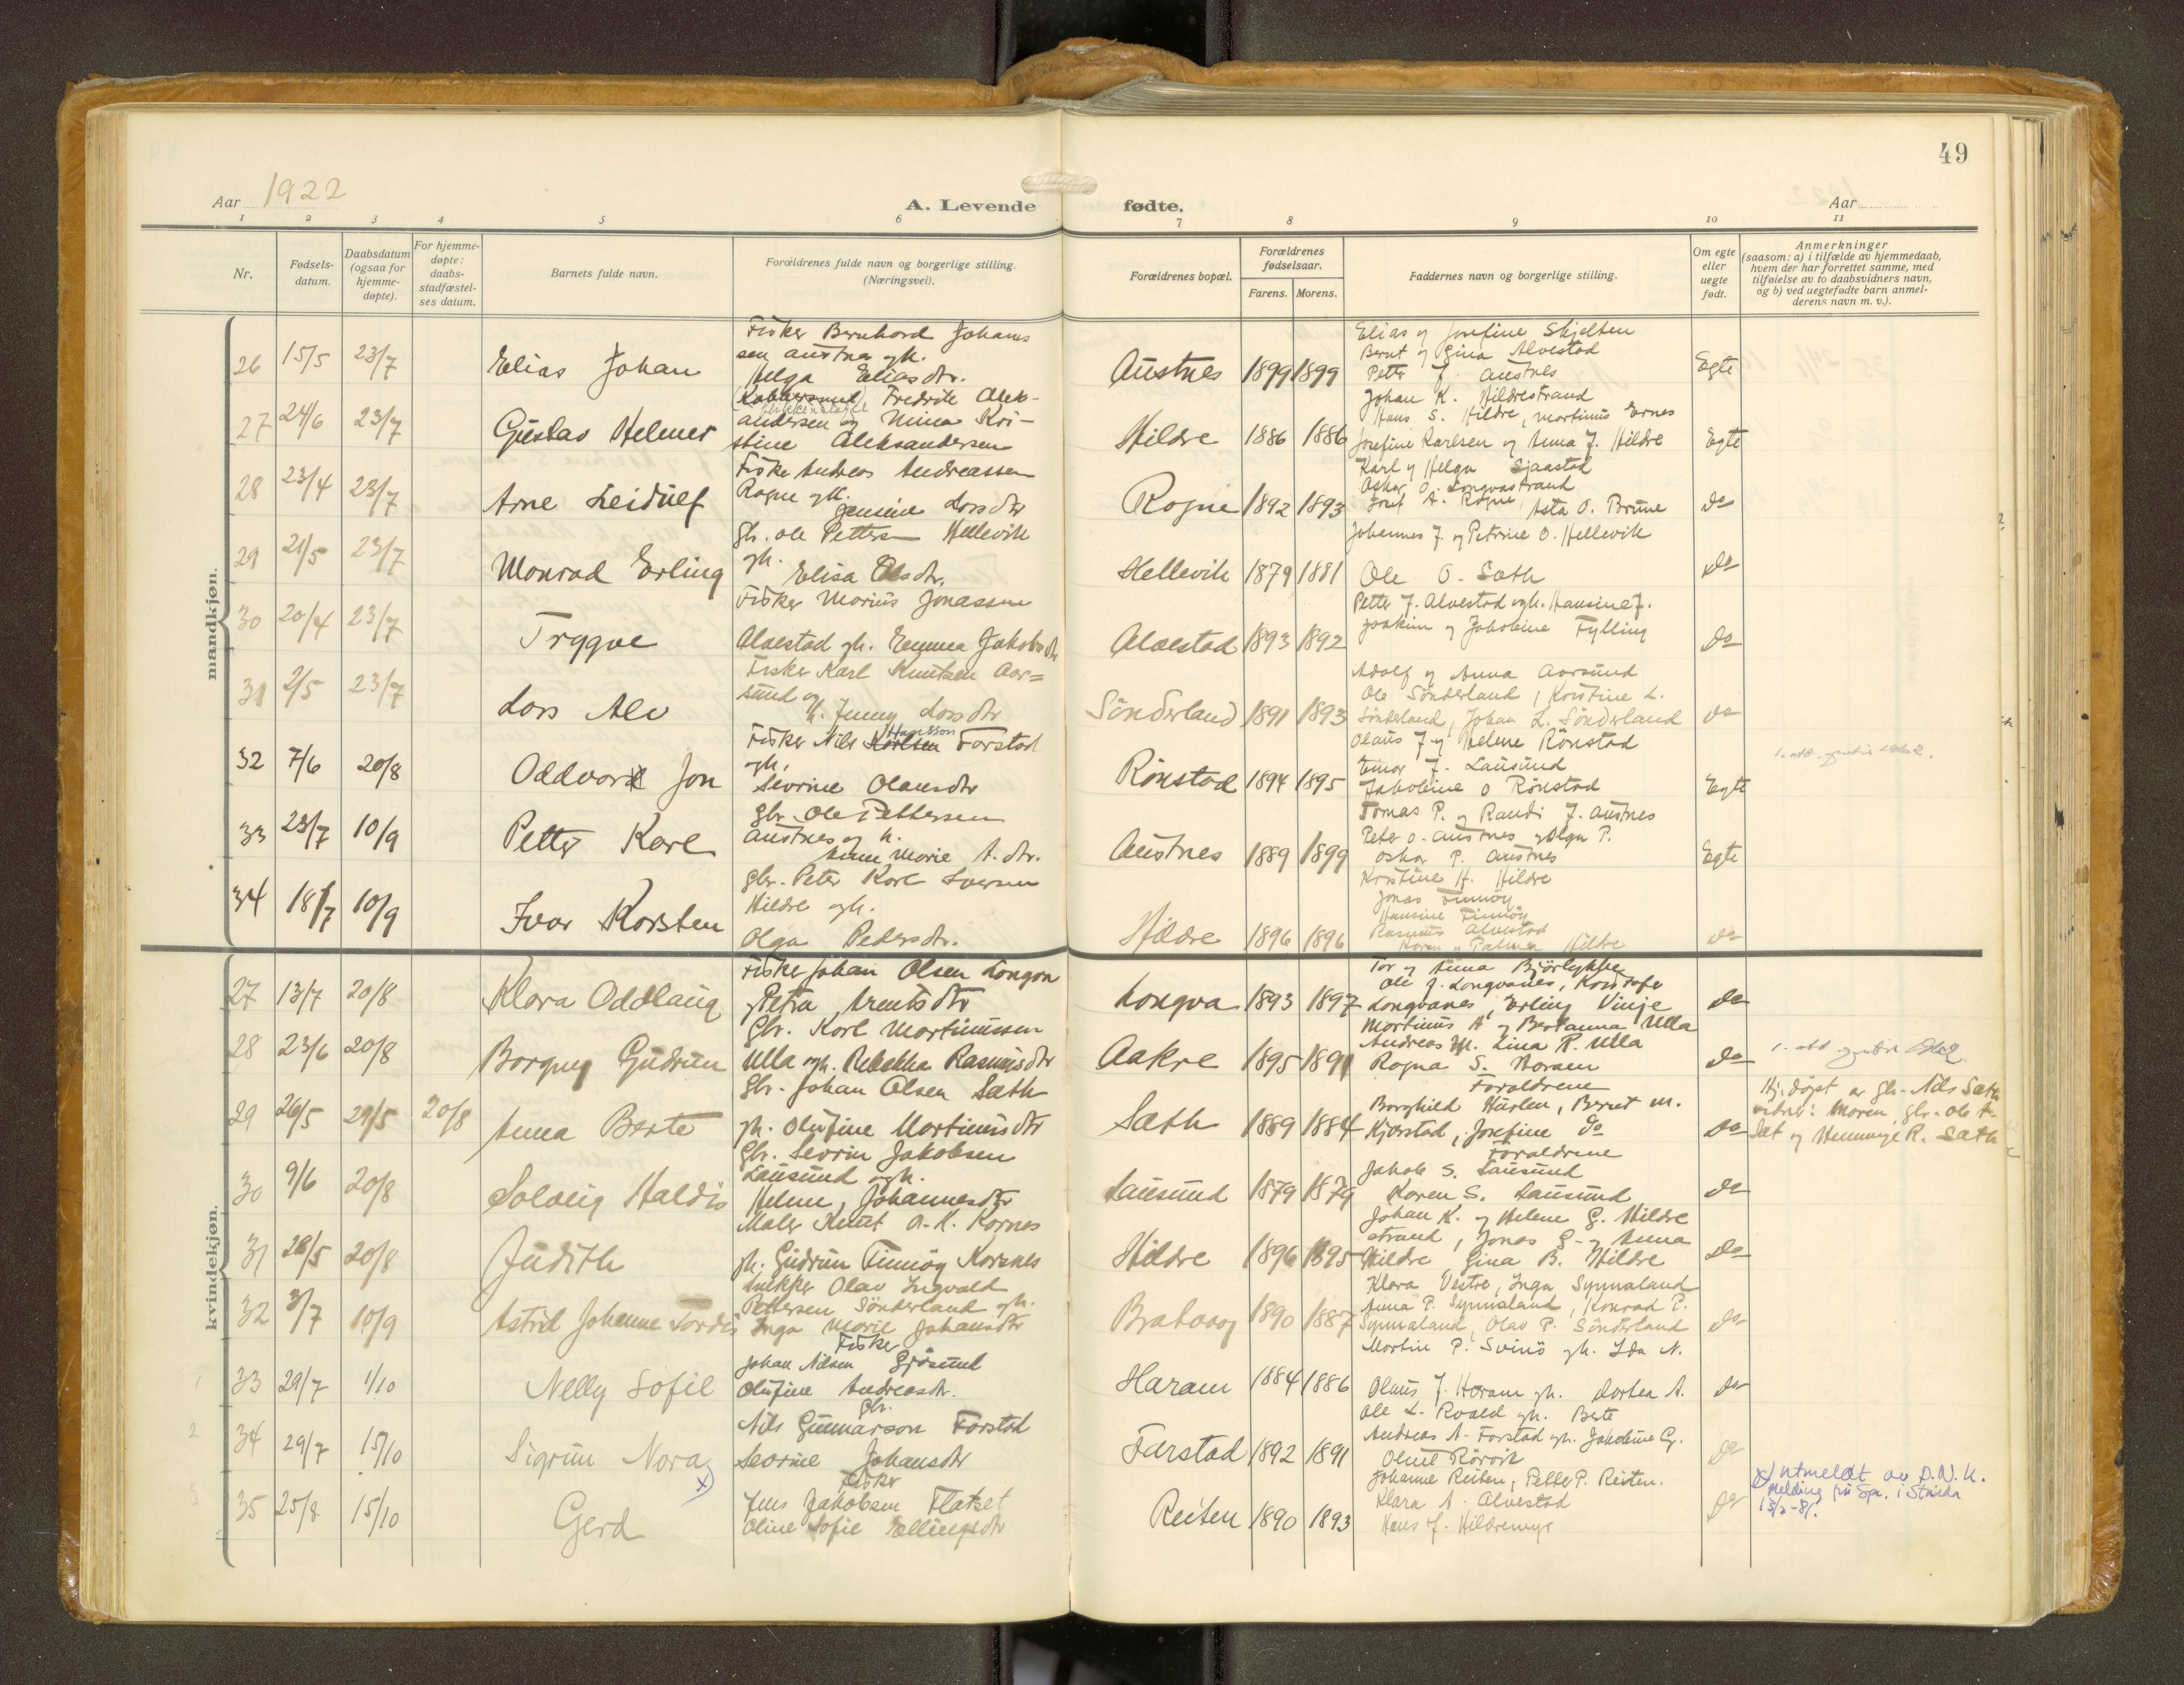 49
Aar 1922
A. Levende fødte.
Aar
1 2 3 4 5 6 7 8 9 10 11
Nr.
Fødsels-
datum.
Daabsdatum
(ogsaa for
hjemme-
døpte).
For hjemme-
døpte:
daabs-
stadfæstel-
ses datum.
Barnets fulde navn.
Forældrenes fulde navn og borgerlige stilling.
(Næringsvei).
Forældrenes bopæl.
Forældrenes
fødselsaar.
Farens. Morens.
Faddernes navn og borgerlige stilling.
Om egte
eller
uegte
født.
Anmerkninger
(saasom: a) i tilfælde av hjemmedaab,
hvem der har forrettet samme, med
tilføielse av to daabsvidners navn,
og b) ved uegtefødte barn anmel-
derens navn m. v.).
mandkjøn.
26 15/5 23/7 Elias Johan
Fisker Bernhard Johans
sen Austnes og h.
Helga Eliasdtr.
Austnes 1899 1899
Elias og Josefine Skjelten
Bernt og Gina Alvestad
Petter J. Austnes
Johan K. Hildrestrand
Egte
27 24/6 23/7 Gustav Helmer
Fredrik Alek-
andersen og Mina Kri-
stine Aleksandersen
Hildre 1886 1886
Hans S. Hildre, Martinus Ernes
Josefine Karlsen og Anna J. Hildre
Egte
28 23/4 23/7 Arne Leidulf
Fisker Andreas Andreassen
Rogne og h.
Jensine Larsdtr
Rogne 1892 1893
Karl og Helga Sjaastad
Oskar O. Longvastrand
Josef A. Rogne, Asta O. Brune
do
29 21/5 23/7 Monrad Erling
gbr. Ole Petterson Hellevik
og h.
Elisa Olsdtr.
Hellevik 1879 1881
Johannes J. og Petrine O. Hellevik
Ole O. Sæth
do
30 20/4 23/7 Trygve
Fisker Marius Jonassen
Alvestad og h. Emma Jakobsdtr
Alvestad 1893 1892
Petter J. Alvestad og h. Hansine J.
Joakim og Jakobine Fylling
do
31 2/5 23/7 Lars Alv
Fisker Karl Knutsen Aar=
sund og
h. Jenny Larsdtr
Sønderland 1891 1893
Adolf og Anna Aarsund
Ole Sønderland, Kristine L.
Sønderland, Johan L. Sønderland
do
32 7/6 20/8 Oddvar Jon
Hansson
Fisker Nils Karlsen Farstad
og h.
Sevrine Olausdtr
Rønstad 1894 1895
Olaus J og Helene Rønstad
Einar J. Lausund
Jakobine O Rønstad
Egte
33 23/7 10/9 Petter Karl
gbr. Ole Pettersen
Austnes og h.
Anna Marie A. dtr.
Austnes 1889 1899
Tomas P. og Randi J. Austnes
Peter O. Austnes og Olga P.
Oskar P. Austnes
Egte
34 18/7 10/9 Ivar Karsten
gbr. Peter Karl Iversen
Hildre og h.
Olga Pedersdtr.
Hildre 1896 1896
Kristine H. Hildre
Jonas Finnøy
Hansine Finnøy
Rasmus Alvestad
Karen og Palmer Hildre
do
kvindekjøn.
27 13/7 20/8 Klara Oddlaug
Fisker Johan Olsen Longva
og Petra Arentsdtr
Longva 1893 1897
Tor og Anna Bjørlykke
Ole J. Longvanes, Kristofer
Longvanes, Erling Vinje
do
28 23/6 20/8 Borgny Gudrun
Gbr. Karl Martinussen
Ulla og h. Rebekka Rasmusdtr
Aakre 1895 1891
Martinus A og Bertanna Ulla
Andreas M. Lina R. Ulla
Ragna S. Haram
Forældrene
do
29 26/5 29/5 20/8 Anna Berte
Gbr. Johan Olsen Sæth
og h. Olufine Martinusdtr
Sæth 1889 1884
Borghild Hurlen, Bernt M.
Kjærstad, Josefine do
Forældrene
do
Hj. døpt av gbr. Nils Sæth
vidner: Moren, gbr. Ole A.
Sæt og Hemmige R. Sæth
30 9/6 20/8 Solveig Haldis
Gbr. Sevrin Jakobsen
Lausund og h.
Helene Johannesdtr
Lausund 1879 1879
Jakob S. Lausund
Karen S. Lausund
do
31 28/5 20/8 Judith
Maler Knut A. K. Kornes
og h. Gudrun Finnøy Korsnes
Hildre 1896 1895
Johan K. og Helene G. Hildre
strand, Jonas G. og Anna
Hildre, Gina B. Hildre
do
32 3/7 10/9 Astrid Johanne Tordis
Snekker Olav Ingvald
Pettersen Sønderland og h.
Inga Marie Johansdtr
Bratvaag 1890 1887
Klara Vestre, Inga Synnaland
Anna P. Synnaland, Konrad P.
Synnaland, Olav P. Sønderland
do
33 29/7 1/10 Nelly Sofie
Fisker
Johan Nilsen Gjøsund
Olufine Andreasdtr.
Haram 1884 1886
Martin P. Svinø og h. Ida N.
Olaus J. Haram og h. Dorthea A.
do
34 29/7 15/10 Sigrun Nora x)
gbr.
Nils Gunnarson Farstad
Sevrine Johansdtr
Farstad 1892 1891
Ole L. Roald og h. Berte
Andreas A. Farstad og h. Jakobine G.
Oline Rørvik
do
x) Utmeldt av D.N.K.
Melding frå Spr. i Strinda
13/2-81.
35 25/8 15/10 Gerd
Fisker
Jens Jakobsen Flatset
Oline Sofie Ellingsdtr
Reiten 1890 1893
Johanne Reiten, Petter P. Reiten.
Klara A. Alvestad
Hans J. Hildremyr
do